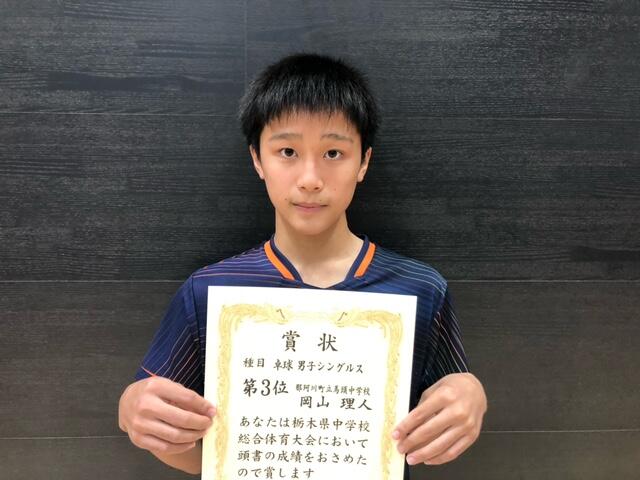 賞状
種目 卓球 男子シングルス
第3位 那珂川町立馬頭中学校
岡山 理人
あなたは栃木県中学校
総合体育大会において
頭書の成績をおさめた
ので賞します